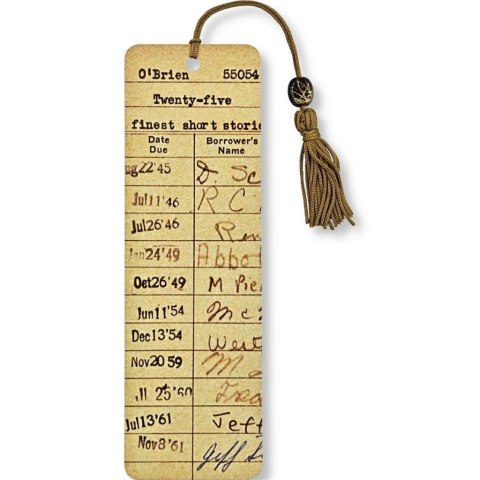 O'Brien 55054
Twenty-five
finest short storie
Date Due Borrower's Name
ug22'45 D. Sc
Jul11'46 R C
Jul26'46 Ren
Jan24'49 Abbot
Oct26'49 M Pie
Jun11'54 McN
Dec13'54 West
Nov2059 M
Jl 25'60 Fra
Jul13'61 Jeff
Nov8'61 Jeff